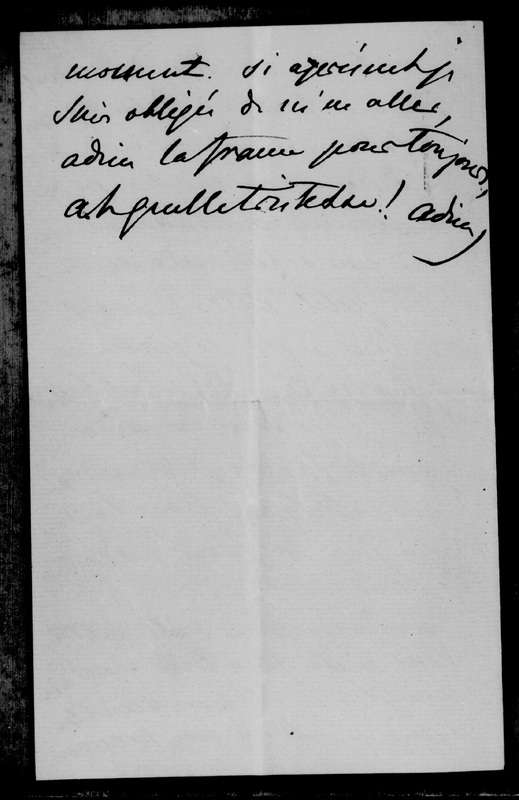 moment. si après cela je
suis obligée de m'en aller,
adieu la france pour toujours,
ah quelle tristesse! adieu